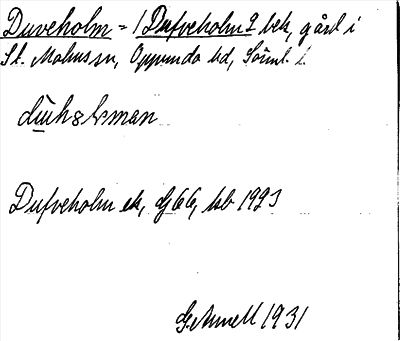 Duveholm = / Dufveholm 2 bek, gård i
St. Malms sn, Oppunda hd, Söml. l.
Dufveholm ek, G 66, hb 1923
G. Annell 1931